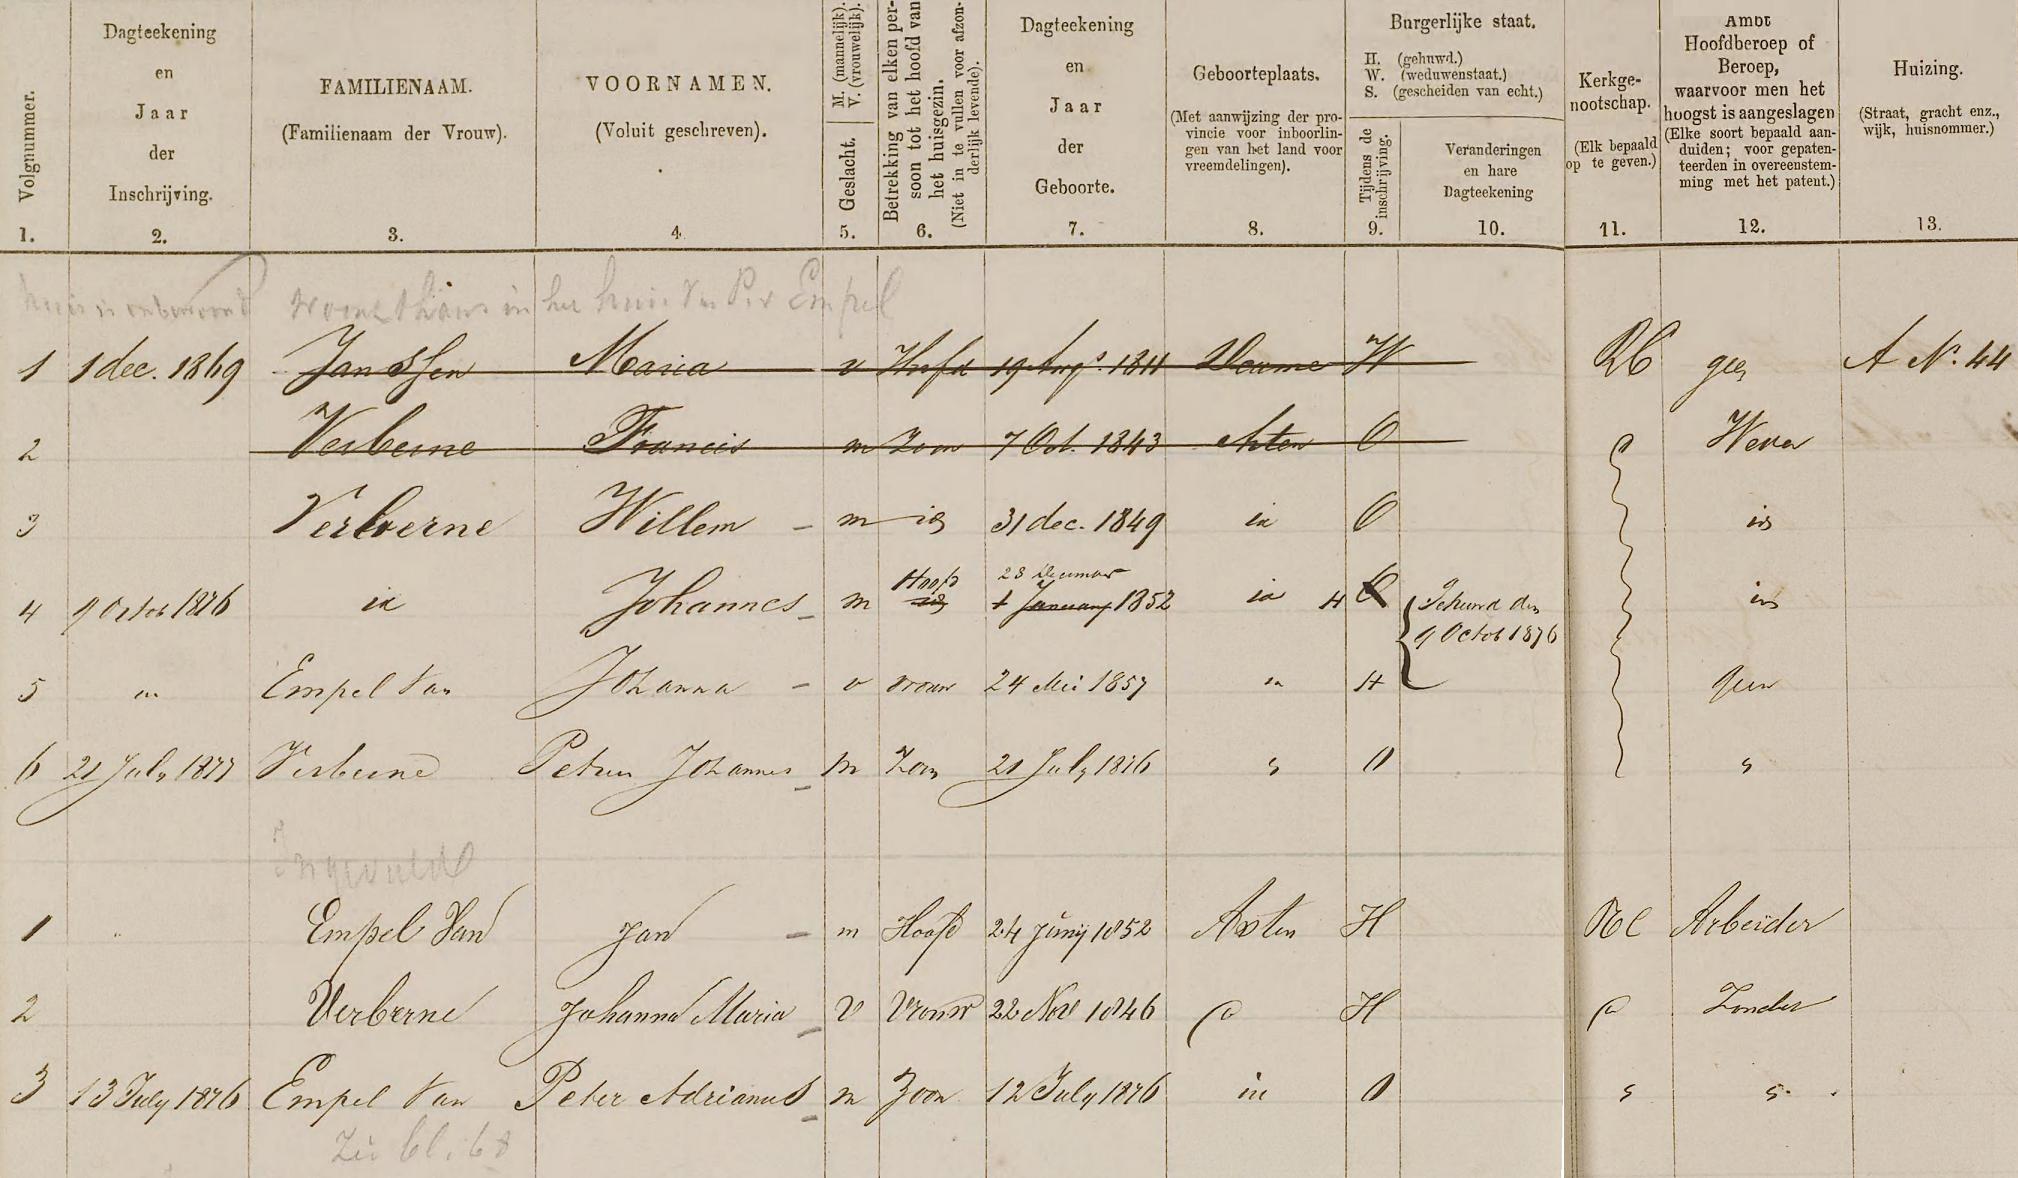 Volgnummer.
1.
Dagteekening
en
Jaar
der
Inschrijving.
2.
FAMILIENAAM.
(Familienaam der Vrouw).
3.
VOORNAMEN.
(Voluit geschreven).
4
M. (mannelijk).
V. (vrouwelijk).
Geslacht.
5.
Betrekking van elken per-
soon tot het hoofd van
het huisgezin.
(Niet in te vullen voor afzon-
derlijk levende).
6.
Dagteekening
en
Jaar
der
Geboorte.
7.
Geboorteplaats.
(Met aanwijzing der pro-
vincie voor inboorlin-
gen van het land voor
vreemdelingen).
8.
Burgerlijke staat.
H. (gehuwd.)
W. (weduwenstaat.)
S. (gescheiden van echt.)
Tijdens de
inschrijving.
9.
Veranderingen
en hare
Dagteekening
10.
Kerkge-
nootschap.
(Elk bepaald
op te geven.)
11.
Ambt
Hoofdberoep of
Beroep,
waarvoor men het
hoogst is aangeslagen
(Elke soort bepaald aan-
duiden; voor gepaten-
teerden in overeenstem-
ming met het patent.)
12.
Huizing.
(Straat, gracht enz.,
wijk, huisnommer.)
13.
huis is onbewoond woont thans in het huis van Empel
1 1 dec. 1869 Janssen Maria v Hoofd 19 Augs. 1811 Deurne W RC geen A No. 44
2 Verberne Francis m Zoon 7 Oct. 1843 Asten O Wever
3 Verberne Willem m id 31 dec. 1849 id O id
Hoofd 28 December
4 9 Octob 1876 id Johannes m id 1 January 1852 id H O Gehuwd den id
9 Octob 1876
5 " Empel Van Johanna v vrouw 24 Mei 1857 " H geen
6 21 July 1877 Verberne Petrus Johannes m Zoon 21 July 1876 " O "
Ingevuld
1 Empel Van Jan m Hoofd 24 Junij 1852 Asten H RC Arbeider
2 Verberne Johanna Maria V Vrouw 22 Nov 1846 H Zonder
3 13 July 1876 Empel Van Peter Adrianus m Zoon 12 July 1876 id O " "
Zie bl. 68